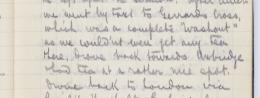 we went by taxi to Gerrards Cross,
which was a complete "washout"
as we couldn't even get any tea
there, drove back towards Uxbridge
+ had tea at a rather nice spot.
Drove back to London via